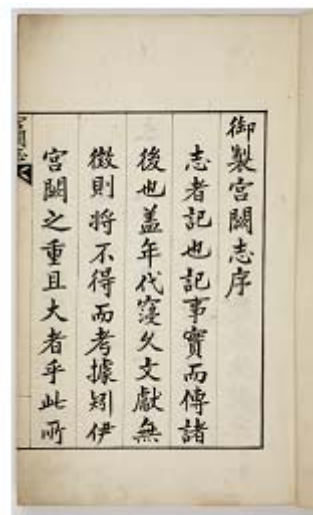 御製宮闕志序
志者記也記事實而傳諸
後也盖年代寖久文獻無
徵則將不得而考據矧伊
宮闕之重且大者乎此所